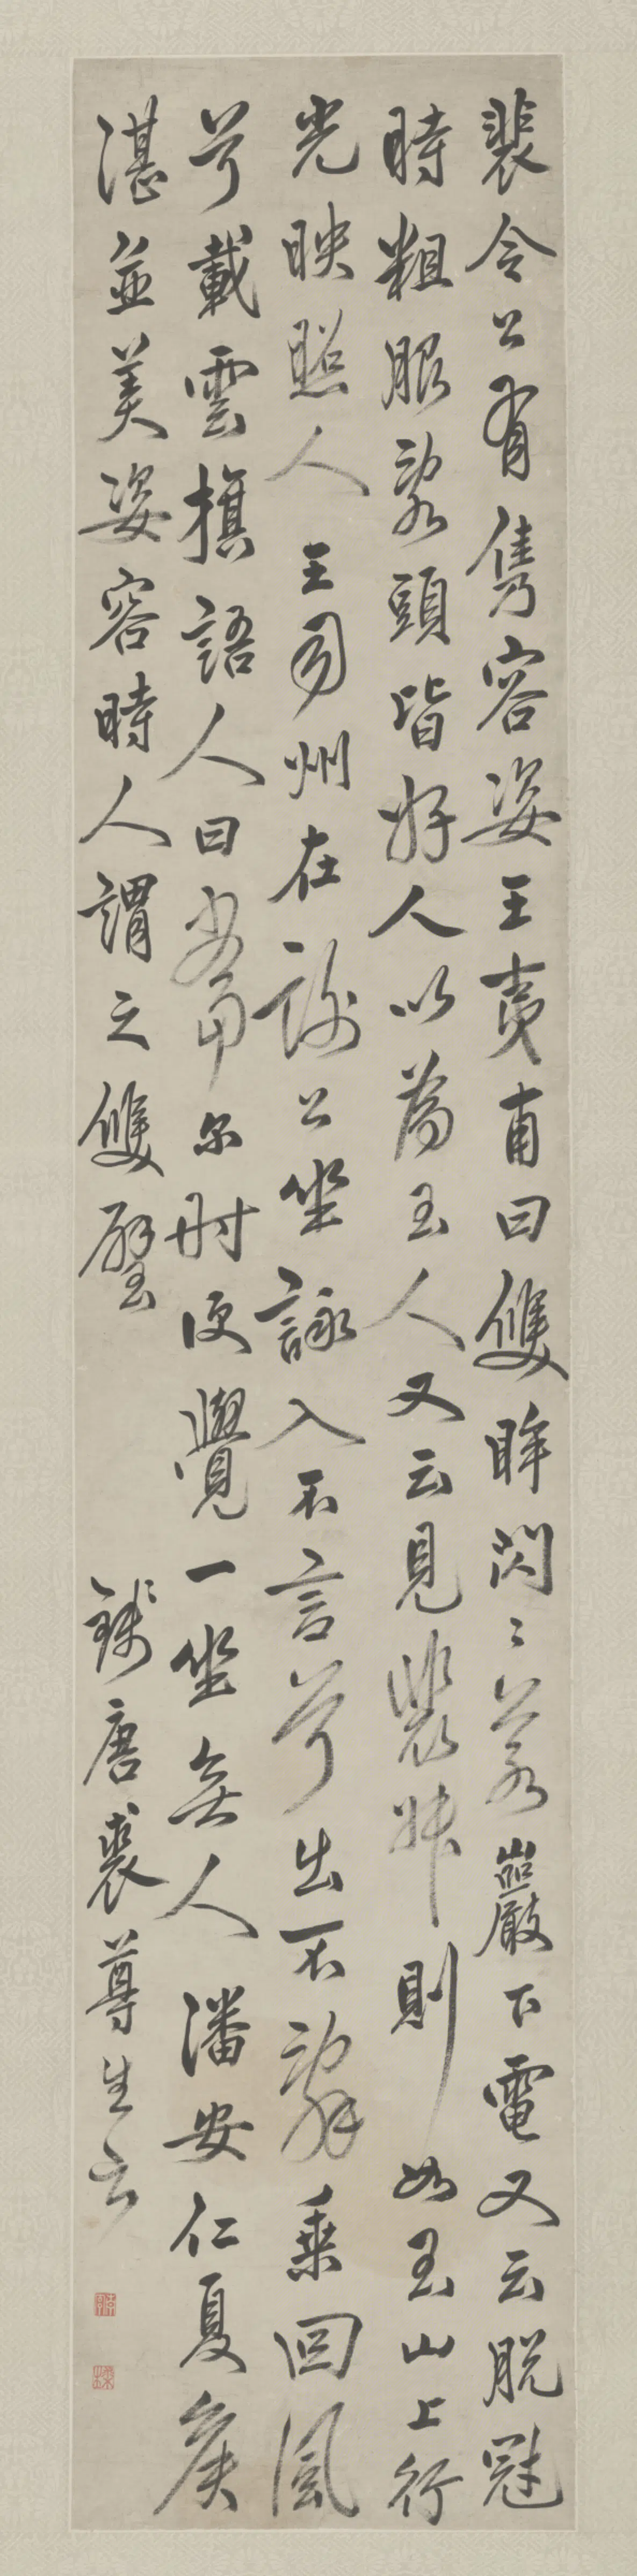 裴令公有雋容姿王夷甫曰雙眸閃〻若巖下電又云脫冠
時粗服亂頭皆好人以為玉人又云見裴叔則如玉山上行
光映照人王司州在謝公坐詠入不言兮出不辭乘回風
兮載雲旗語人曰當尔时便覺一坐無人潘安仁夏侯
湛並美姿容時人謂之雙璧
錢唐裘尊生